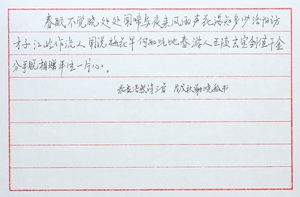 春眠不觉晓处处闻啼鸟夜来风雨声花落知多少洛阳访
才子江岭作流人闻说梅花早何如此地春游人五陵去宝剑值千金
分手脱相赠平生一片心。
孟浩然诗三首